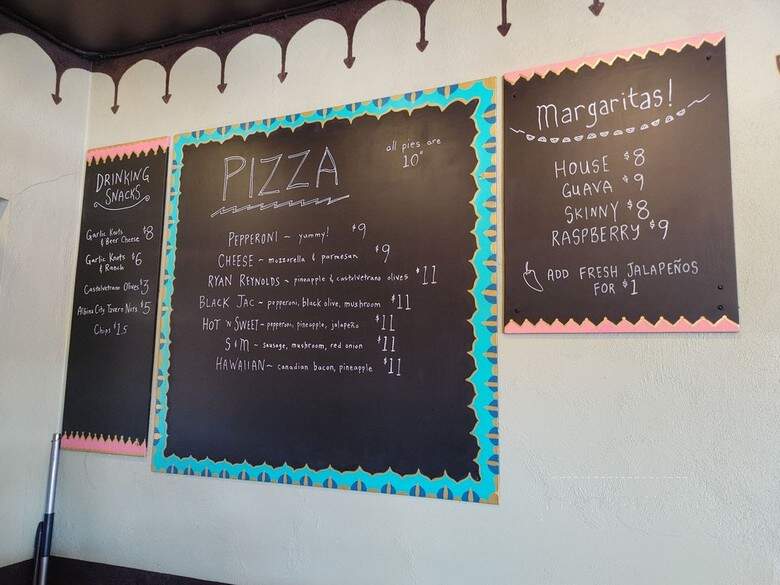 DRINKING
SNACKS
Garlic Knots
& Beer Cheese $8
Garlic Knots $6
& Ranch
Castelvetrano Olives $3
Albina City Tavern Nuts $5
Chips $1.5
PIZZA
all pies are
10"
PEPPERONI ~ yummy! $9
CHEESE ~ mozzarella & parmesan $9
RYAN REYNOLDS ~ pineapple & castelvetrano olives $11
BLACK JAC ~ pepperoni, black olive, mushroom $11
HOT 'N SWEET ~ pepperoni, pineapple, jalapeño $11
S & M ~ sausage, mushroom, red onion $11
HAWAIIAN ~ canadian bacon, pineapple $11
Margaritas!
HOUSE $8
GUAVA $9
SKINNY $8
RASPBERRY $9
ADD FRESH JALAPEÑOS
FOR $1